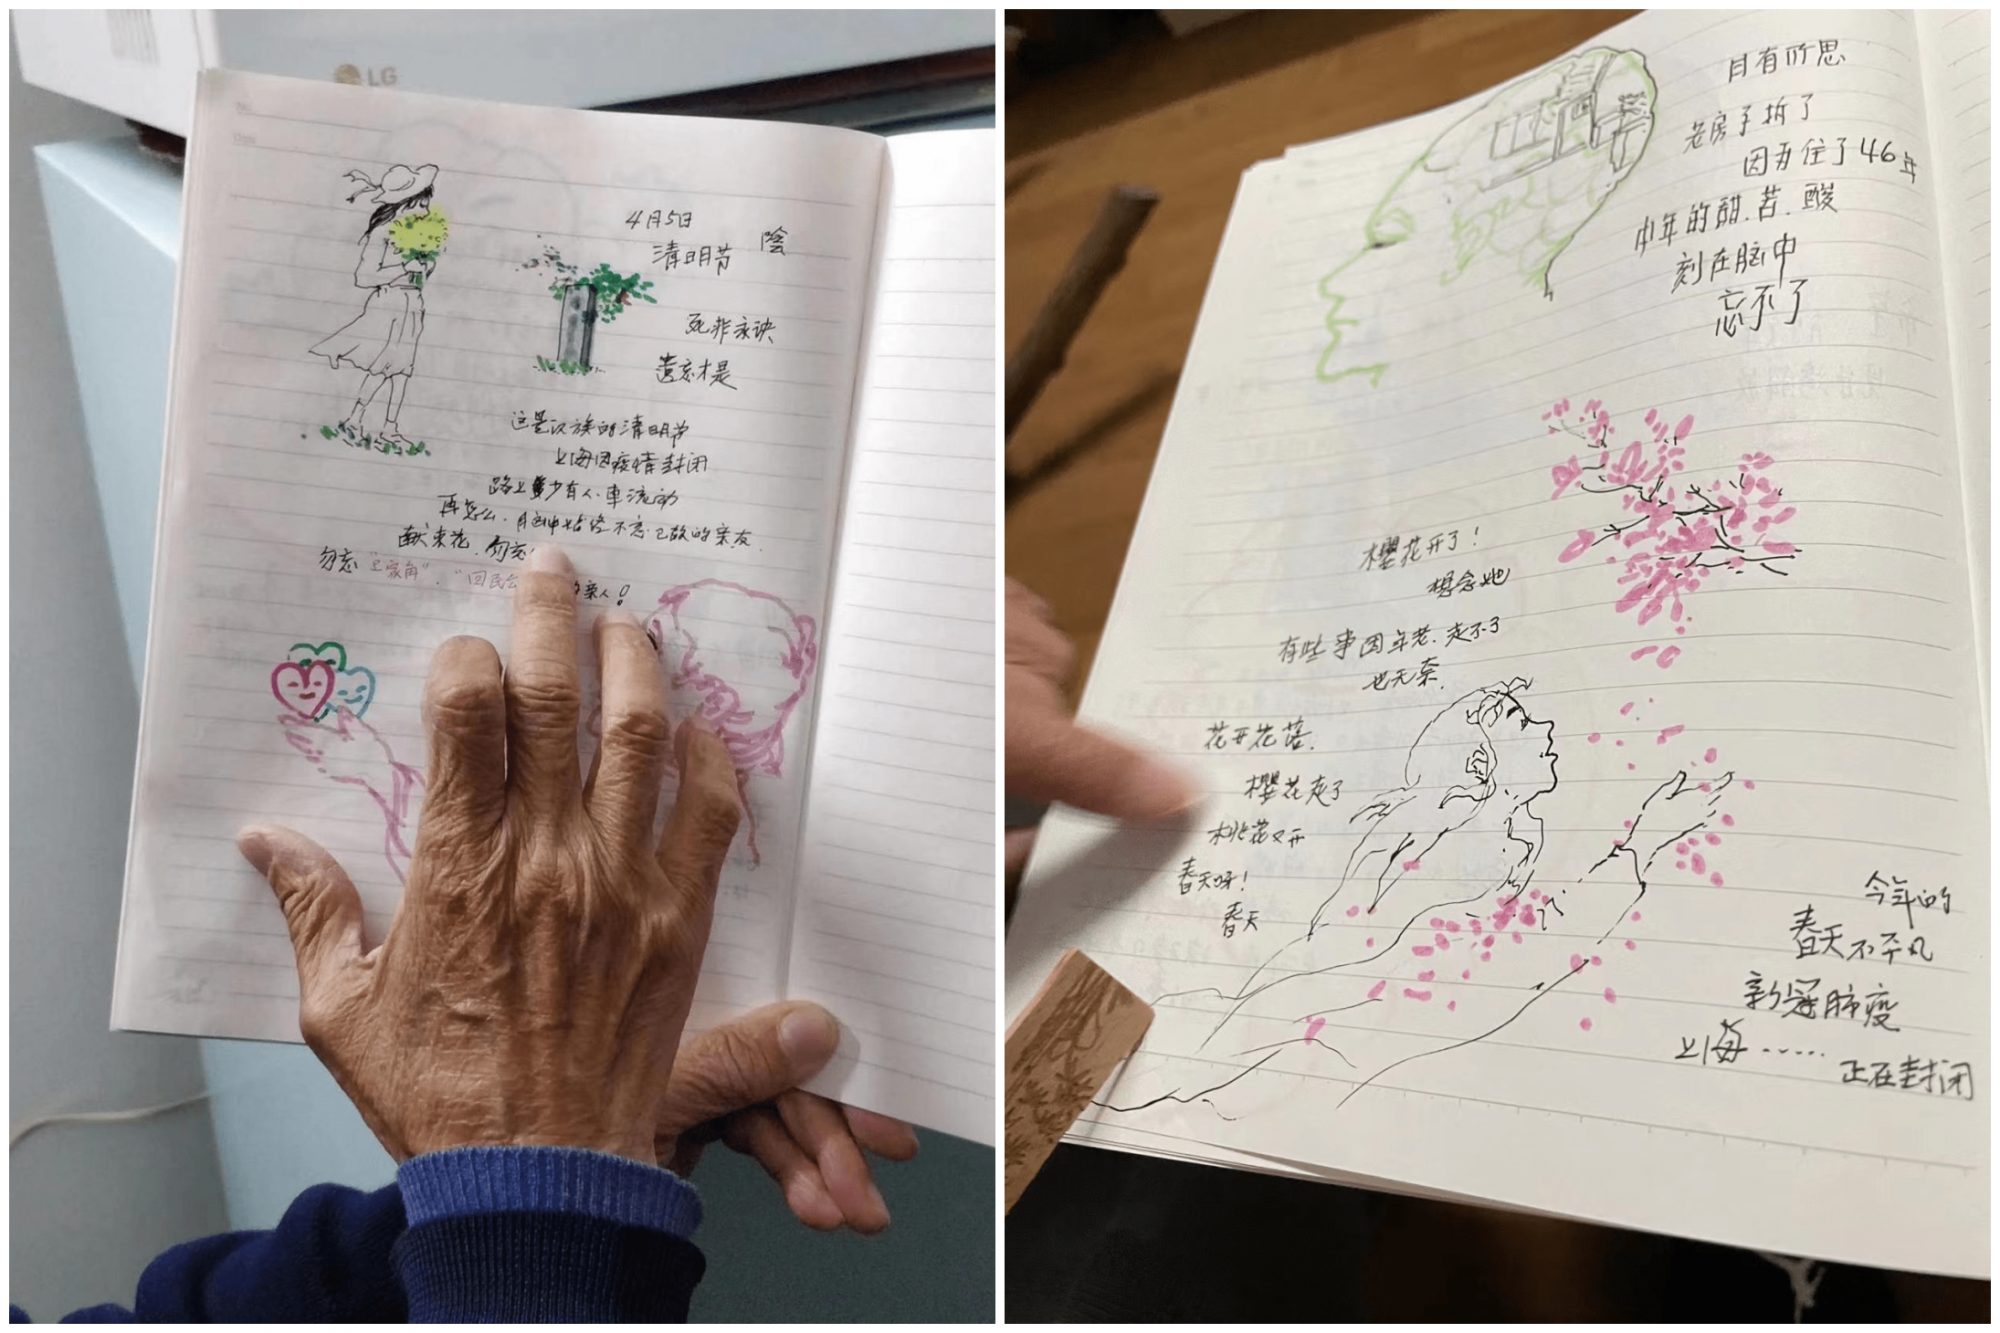 LG
4月5日
清明节 陰
死非永诀
遗忘才是
这是汉族的清明节
上海因疫情封闭
路上少有人、車流动
再怎么、脑中始终不忘已故的亲友.
献束花、勿忘
勿忘 "
", "回民公
亲人!
日有所思
老房子拆了
因再住了46年
中年的甜.苦.酸
刻在脑中
忘不了
樱花开了!
想念她
有些事因年老.走不了
也无奈.
花开花落.
樱花走了
桃花又开
春天呀!
春天
今年的
春天不平凡
新冠肺疫
上海……
正在封闭